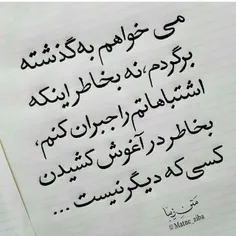 می خواهم به گذشته
برگردم، نه بخاطر اینکه
اشتباهاتم را جبران کنم،
بخاطر در آغوش کشیدن
کسی که دیگر نیست ...
متن زیبا
@Matne_ziba